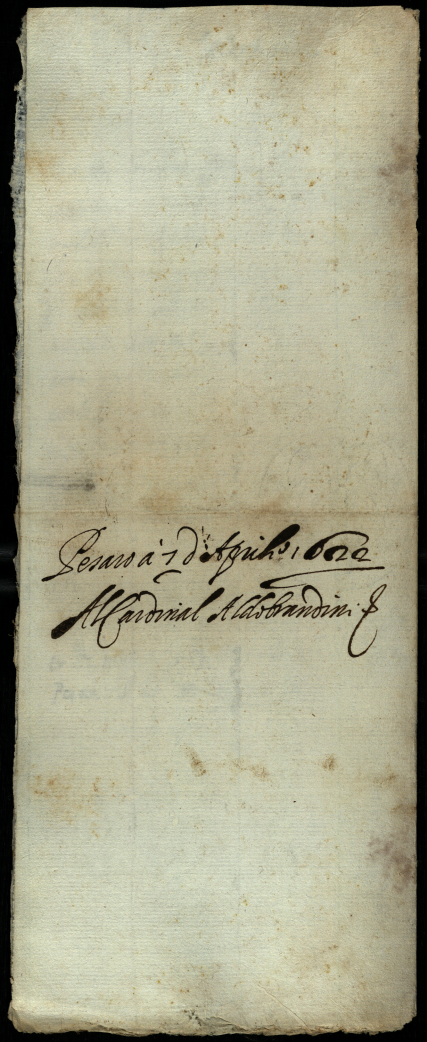 Pesaro à 7 d'Aprile 1622
Al Cardinal Aldobrandini